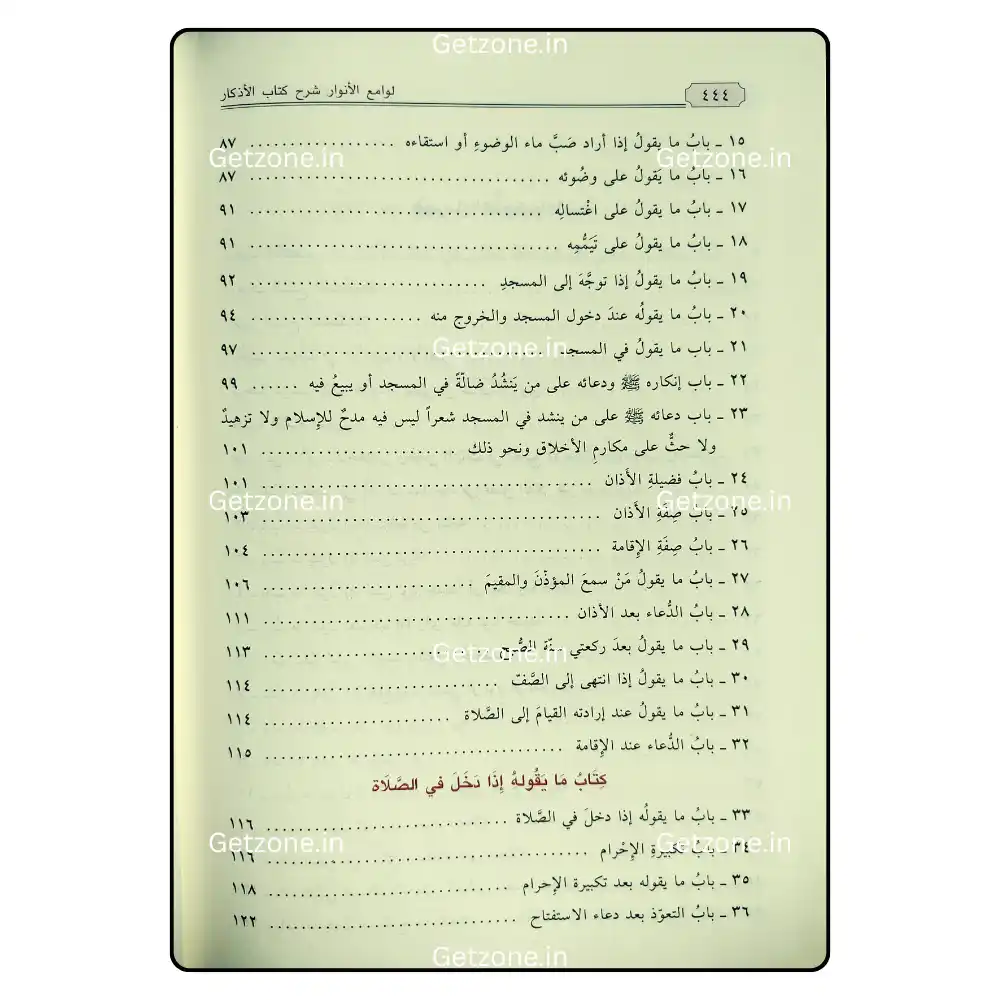 Getzone.in
٤٤٤
لوامع الأنوار شرح كتاب الأذكار
١٥ ـ بابُ ما يقولُ إذا أراد صَبَّ ماء الوضوءِ أو استقاءه .................. ٨٧
Getzone.in Getzone.in
١٦ ـ بابُ ما يَقولُ على وضُوئه ...................................... ٨٧
١٧ ـ بابُ ما يقولُ على اغْتسالِه ..................................... ٩١
١٨ ـ بابُ ما يقولُ على تَيَمُّمِه ....................................... ٩١
١٩ ـ بابُ ما يقولُ إذا توجَّهَ إلى المسجدِ .............................. ٩٢
٢٠ ـ بابُ ما يقولُه عندَ دخول المسجد والخروج منه ...................... ٩٤
٢١ ـ باب ما يقولُ في المسجد ...................................... ٩٧
Getzone.in
٢٢ ـ باب إنكاره ﷺ ودعائه على من يَنشُدُ ضالّةً في المسجد أو يبيعُ فيه ...... ٩٩
٢٣ ـ باب دعائه ﷺ على من ينشد في المسجد شعراً ليس فيه مدحٌ للإسلام ولا تزهيدٌ
ولا حثٌّ على مكارمِ الأخلاق ونحو ذلك ......................... ١٠١
٢٤ ـ بابُ فضيلةِ الأَذان .......................................... ١٠١
Getzone.in Getzone.in
٢٥ ـ بابُ صِفَةِ الأَذان ........................................... ١٠٣
٢٦ ـ بابُ صِفَةِ الإقامة ........................................... ١٠٤
٢٧ ـ بابُ ما يقولُ مَنْ سمعَ المؤذّنَ والمقيمَ ........................... ١٠٦
٢٨ ـ بابُ الدُّعاء بعد الأذان ....................................... ١١١
٢٩ ـ باب ما يقولُ بعدَ ركعتي سنّة الصُّبح ............................ ١١٣
Getzone.in
٣٠ ـ بابُ ما يقولُ إذا انتهى إلى الصَّفّ .............................. ١١٤
٣١ ـ بابُ ما يقولُ عند إرادته القيامَ إلى الصَّلاة ........................ ١١٤
٣٢ ـ بابُ الدُّعاء عند الإقامة ...................................... ١١٥
كِتَابُ مَا يَقُولهُ إِذَا دَخَلَ في الصَّلَاة
٣٣ ـ بابُ ما يقولُه إذا دخلَ في الصَّلاة ............................... ١١٦
Getzone.in Getzone.in
٣٤ ـ بابُ تكبيرةِ الإحْرام ......................................... ١١٦
٣٥ ـ بابُ ما يقوله بعد تكبيرة الإحرام ............................... ١١٨
٣٦ ـ بابُ التعوّذ بعد دعاء الاستفتاح ................................ ١٢٢
Getzone.in